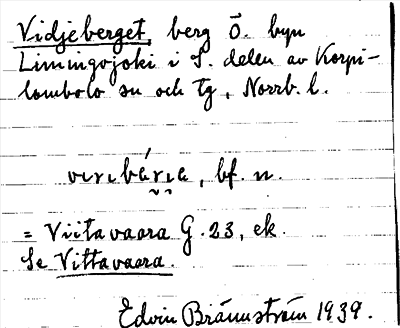 Vidjeberget, berg Ö. byn
Limingojoki i S. delen av Korpi-
lombolo sn och tg, Norrb. l.
bf. n.
= Viitavaara G. 23, ek.
Se Vittavaara.
Edvin Brännström 1939.